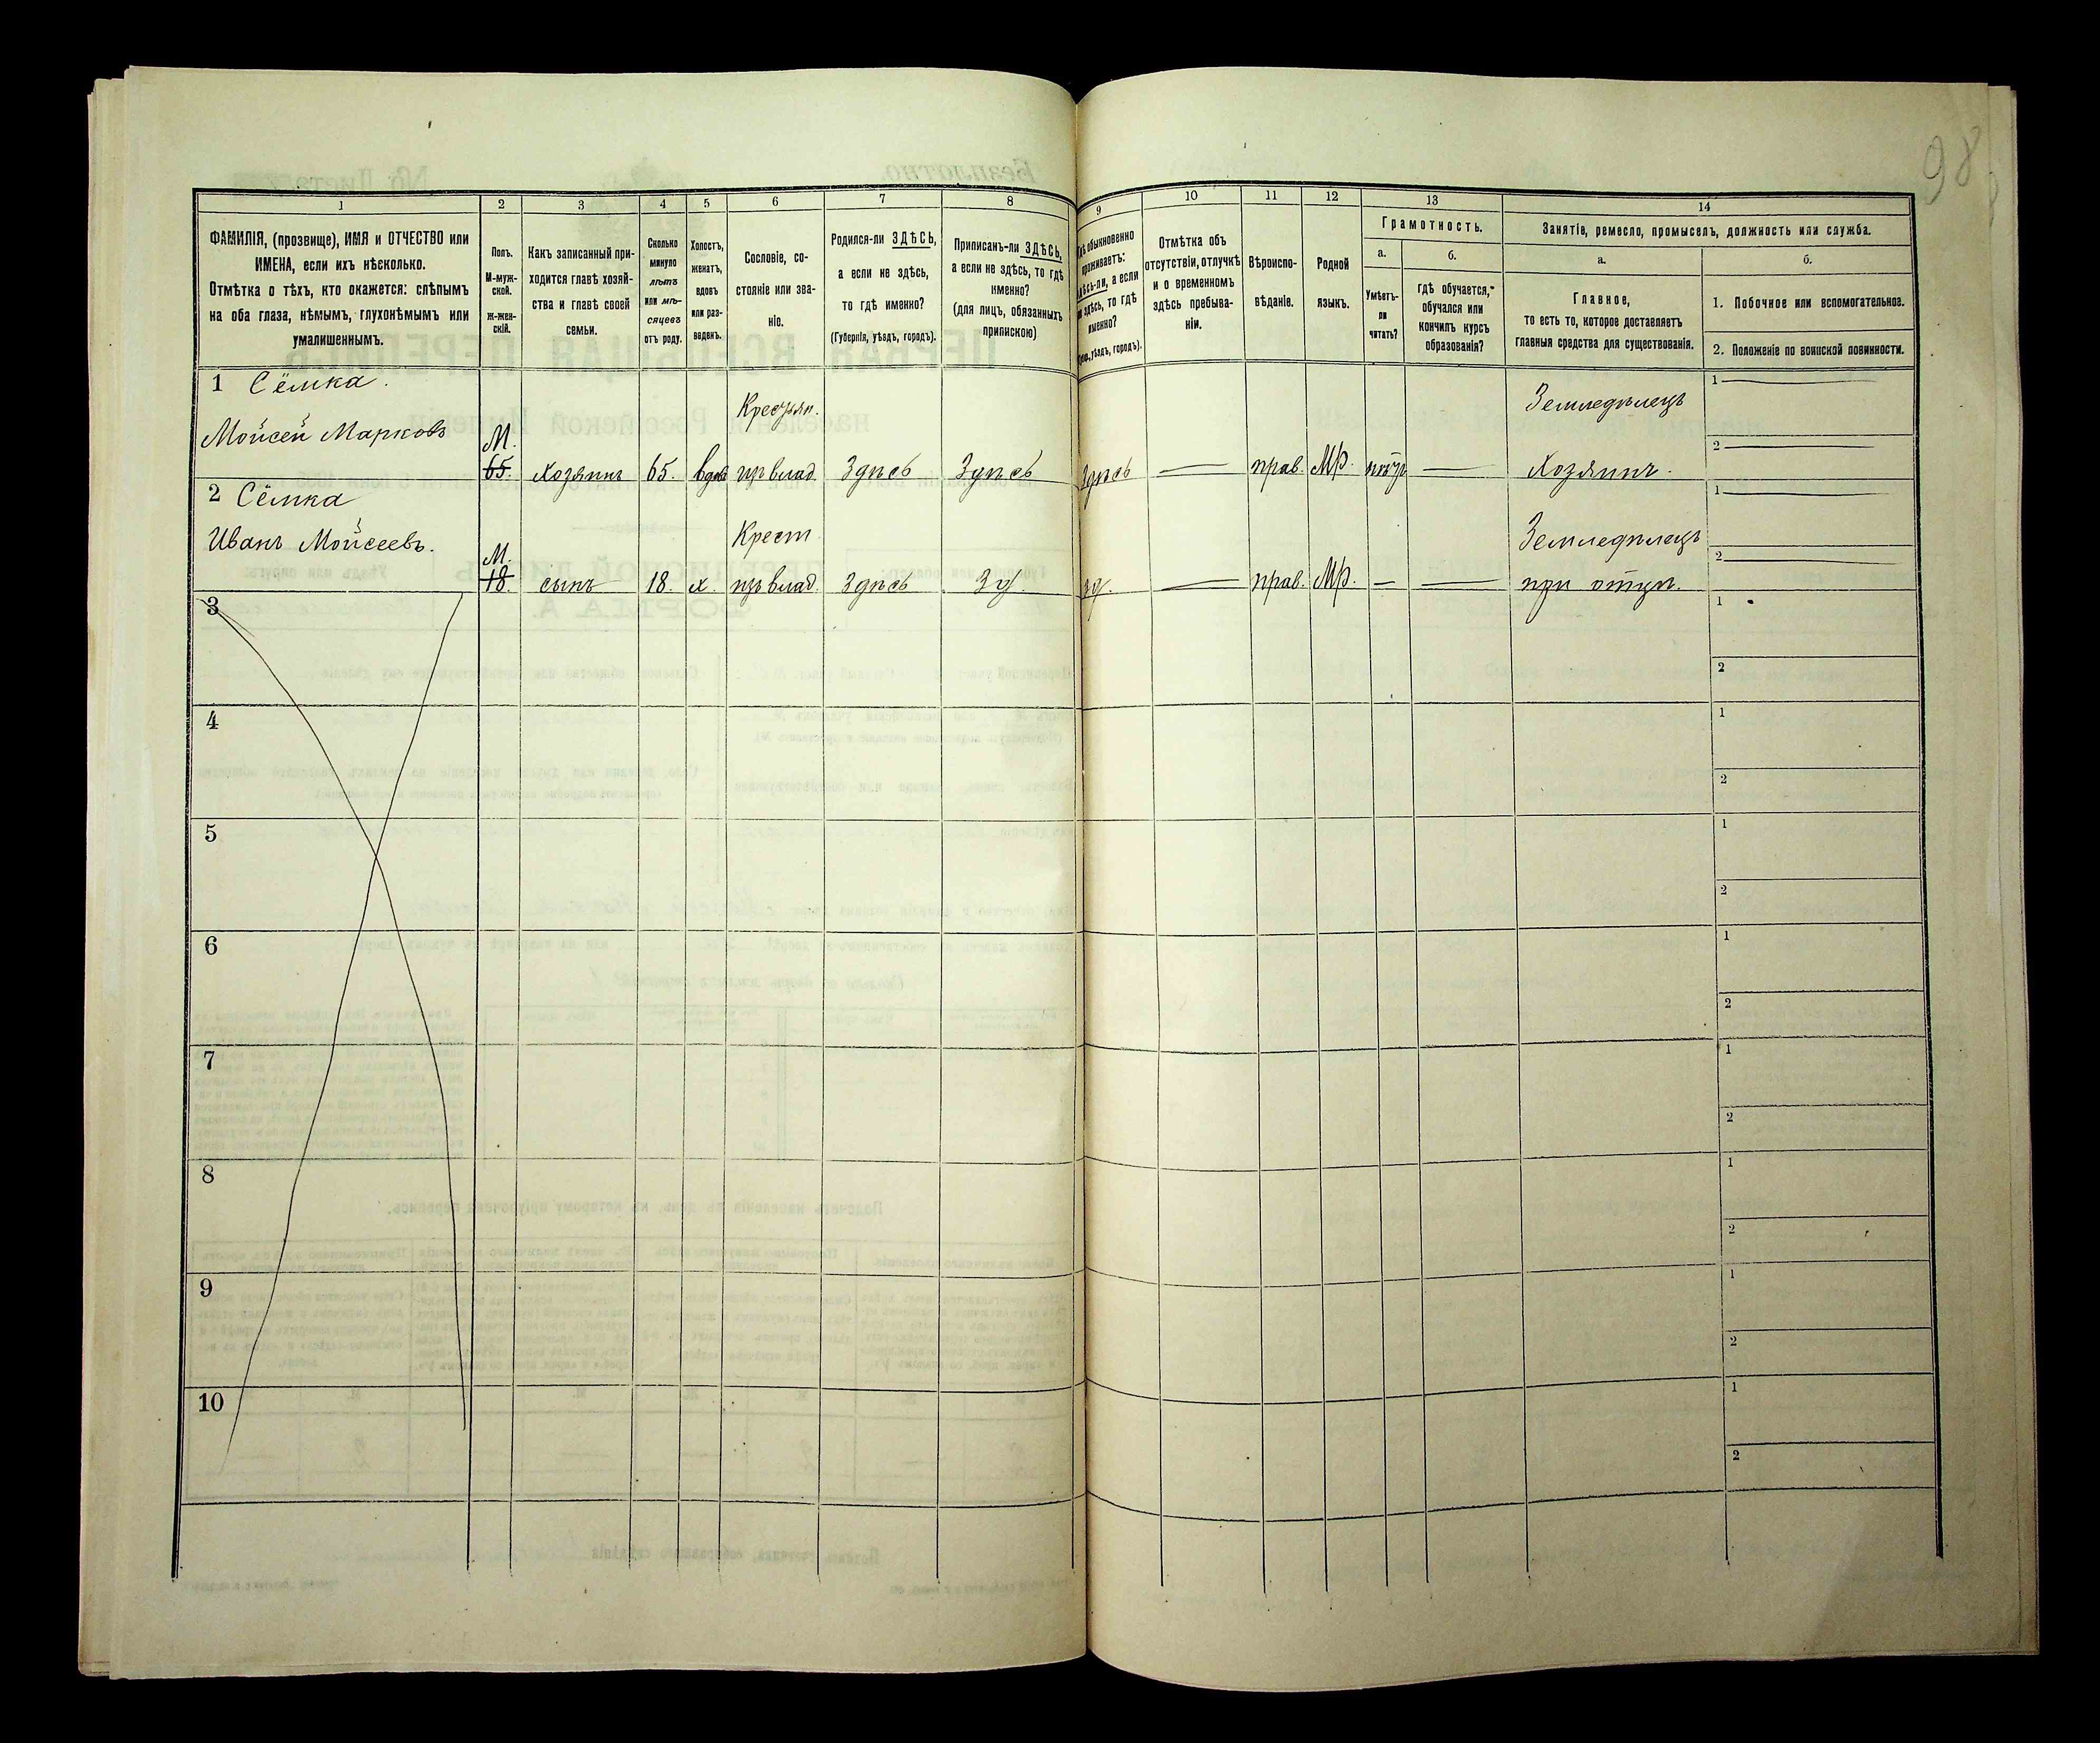 98
1
2
3
4
5
6
7
8
9
10
11
12
13
14
ФАМИЛІЯ, (прозвище), ИМЯ и ОТЧЕСТВО или
ИМЕНА, если ихъ нѣсколько.
Отмѣтка о тѣхъ, кто окажется: слѣпымъ
на оба глаза, нѣмымъ, глухонѣмымъ или
умалишеннымъ.
Полъ.
М-муж-
ской.
Ж-жен-
скій.
Какъ записанный при-
ходится главѣ хозяй-
ства и главѣ своей
семьи.
Сколько
минуло
лѣтъ
или мѣ-
сяцевъ
отъ роду.
Холостъ,
женатъ,
вдовъ
или раз-
веденъ.
Сословіе, со-
стояніе или зва-
ніе.
Родился-ли ЗДѢСЬ,
а если не здѣсь,
то гдѣ именно?
(Губернія, уѣздъ, городъ).
Приписанъ-ли ЗДѢСЬ,
а если не здѣсь, то гдѣ
именно?
(для лицъ, обязанныхъ
припискою)
обыкновенно
проживаетъ:
здѣсь-ли, а если
не здѣсь, то гдѣ
именно?
уѣздъ, городъ).
Отмѣтка объ
отсутствіи, отлучкѣ
и о временномъ
здѣсь пребыва-
ніи.
Вѣроиспо-
вѣданіе.
Родной
языкъ.
Грамотность.
а.
Умѣетъ-
ли
читать?
б.
гдѣ обучается,
обучался или
кончилъ курсъ
образованія?
Занятіе, ремесло, промыселъ, должность или служба.
а.
Главное,
то есть то, которое доставляетъ
главныя средства для существованія.
б.
1. Побочное или вспомогательное.
2. Положеніе по воинской повинности.
1 Сёмка.
Мойсей Марковъ
М.
65.
Хозяинъ
65.
вдов
Крестьян.
изъ влад.
Здѣсь
Здѣсь
Здѣсь
—
прав.
Мр.
—
Земледѣлецъ
Хозяинъ.
1 —
2 —
2 Сёмка
Иванъ Мойсеевъ.
М.
18.
сынъ
18.
х.
Крест
изъ влад.
Здѣсь
Зд.
зд.
—
прав.
Мр.
—
—
Земледѣлецъ
при отцѣ.
1 —
2 —
3
1
2
4
1
2
5
1
2
6
1
2
7
1
2
8
1
2
9
1
2
10
1
2